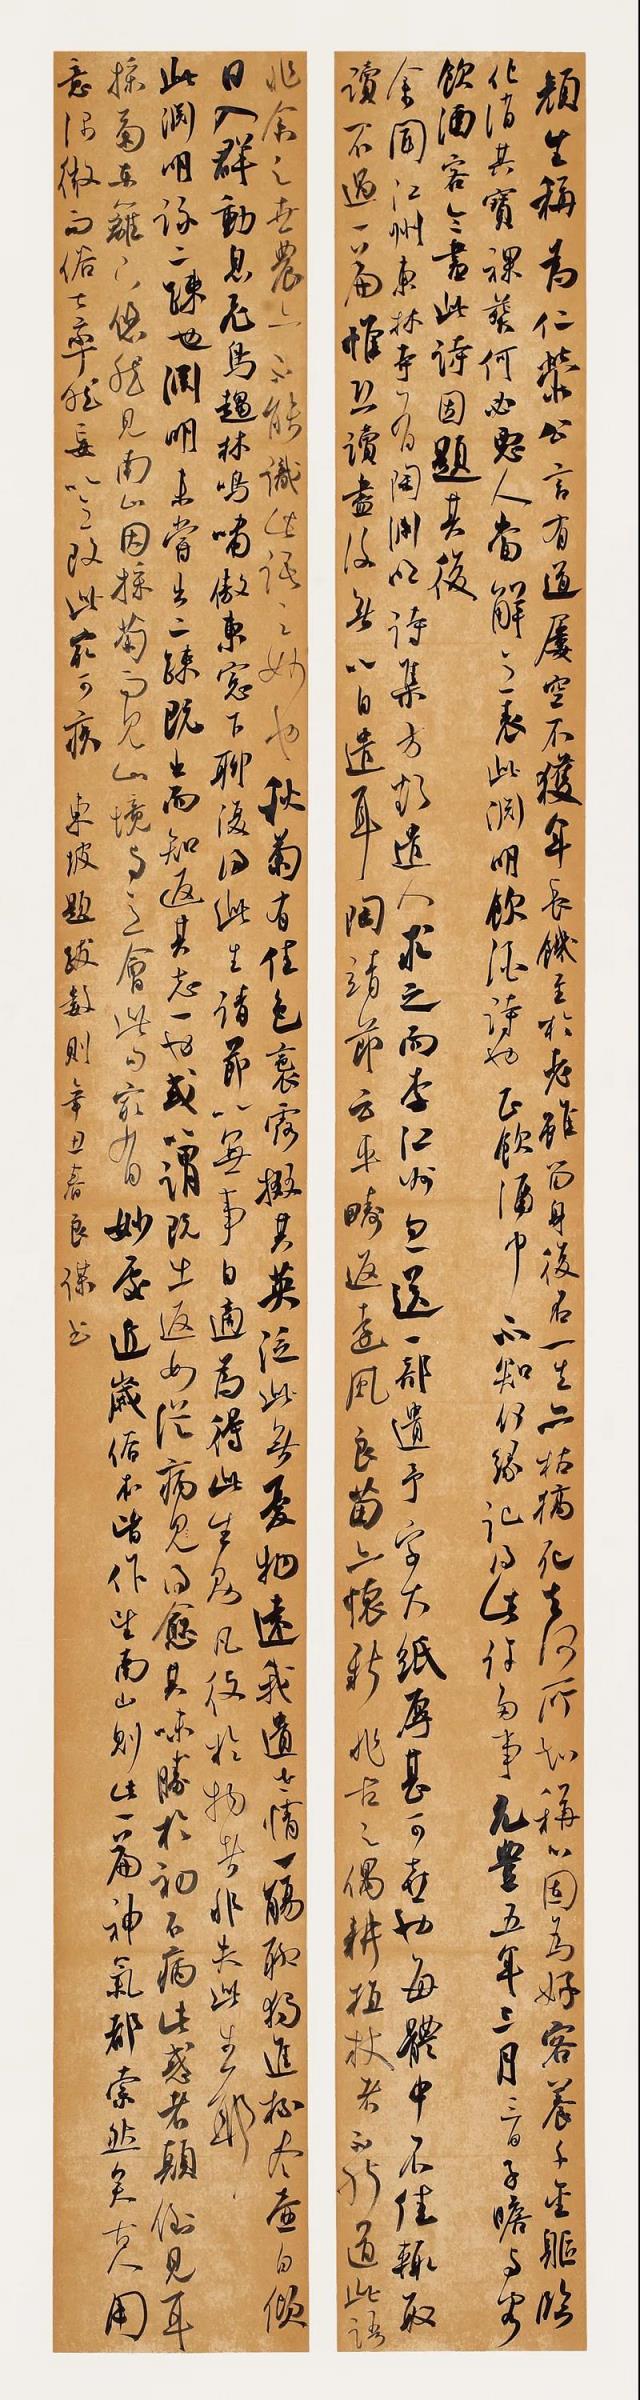 顏生稱為仁榮公言有道屢空不獲年長饑至於老雖留身後名一生亦枯槁死去何所知稱心固為好客養千金軀臨
化消其寶裸葬何必惡人當解意表此淵明飲酒詩也正飲酒中不知何緣記得此許多事元豐五年三月三日子瞻與客
飲酒客令書此詩因題其後
余聞江州東林寺有陶淵明詩集方欲遣人求之而李江州忽送一部遺予字大紙厚甚可喜也每體中不佳輒取
讀不過一篇惟恐讀盡後無以自遣耳陶靖節云平疇返遠風良苗亦懷新非古之偶耕植杖者不能道此語
非余之世農亦不能識此語之妙也秋菊有佳色裛露掇其英泛此無憂物遠我遺世情一觴聊獨進杯盡壺自傾
日入群動息飛鳥趨林鳴嘯傲東窗下聊復得此生靖節以無事自適為得此生則凡役於物者非失此生耶
此淵明詠二疎也淵明未嘗出二疎既出而知返其志一也或以謂既出返如從病得愈其味勝於初不病此惑者顛倒見耳
採菊東籬下悠然見南山因採菊而見山境與意會此句最有妙處近歲俗本皆作望南山則此一篇神氣都索然矣古人用
意深微而俗士率然妄以意改此最可疾 東坡題跋數則辛丑春良謀書